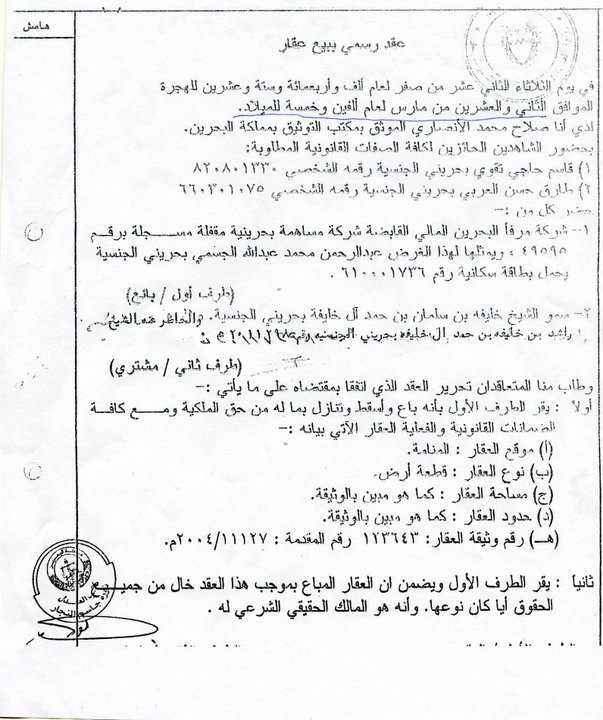 هامش
عقد رسمي ببيع عقار
في يوم الثلاثاء الثاني عشر من صفر لعام ألف وأربعمائة وستة وعشرين للهجرة
الموافق الثاني والعشرين من مارس لعام ألفين وخمسة للميلاد.
لدي أنا صلاح محمد الأنصاري الموثق بمكتب التوثيق بمملكة البحرين.
بحضور الشاهدين الحائزين لكافة الصفات القانونية المطلوبة:
١) قاسم حاجي نقوي بحريني الجنسية رقمه الشخصي ٨٢٠٨٠١٣٣٠
٢) طارق حسن العربي بحريني الجنسية رقمه الشخصي ٦٦٠٣٠١٠٧٥
حضر كل من :-
١- شركة مرفأ البحرين المالي القابضة شركة مساهمة بحرينية مقفلة مسجلة برقم
٤٩٥٩٥ ، ويمثلها لهذا الغرض عبدالرحمن محمد عبدالله الجسمي بحريني الجنسية
يحمل بطاقة سكانية رقم ٦١٠٠٠١٧٣٦ .
(طرف أول / بائع)
٢- سمو الشيخ خليفه بن سلمان بن حمد آل خليفة بحريني الجنسية. والحاضر عنه الشيخ
راشد بن خليفه بن حمد آل خليفه بحريني الجنسيه رقم
(طرف ثاني / مشتري)
وطلب منا المتعاقدان تحرير العقد الذي اتفقا بمقتضاه على ما يأتي :-
أولاً : يقر الطرف الأول بأنه باع وأسقط وتنازل بما له من حق الملكية ومع كافة
الضمانات القانونية والفعلية العقار الآتي بيانه :-
(أ) موقع العقار : المنامة.
(ب) نوع العقار : قطعة أرض.
(ج) مساحة العقار : كما هو مبين بالوثيقة.
(د) حدود العقار : كما هو مبين بالوثيقة.
(هـ) رقم وثيقة العقار: ١٢٣٦٤٣ رقم المقدمة : ٢٠٠٤/١١١٢٧م.
ثانياً : يقر الطرف الأول ويضمن ان العقار المباع بموجب هذا العقد خال من جميع
الحقوق أيا كان نوعها. وأنه هو المالك الحقيقي الشرعي له .